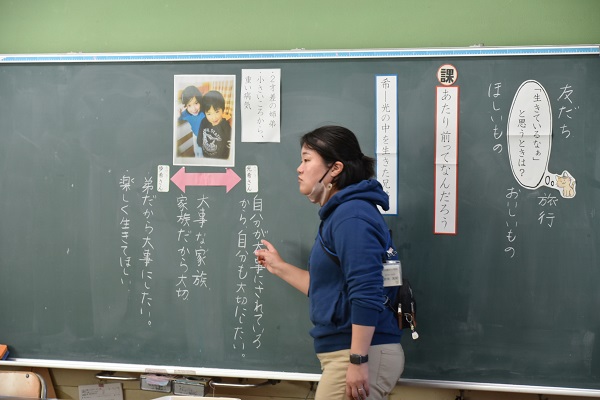 友だち
ほしいもの
「生きているなぁ」
と思うときは？
旅行
おいしいもの
課
あたり前ってなんだろう
希－光の中を生きた
・２才差の姉弟
小さいころから、
重い病気
自分が大事にされている
から、自分も大切にしたい。
大事な家族
家族だから大切
弟だから大事にしたい。
楽しく生きてほしい。